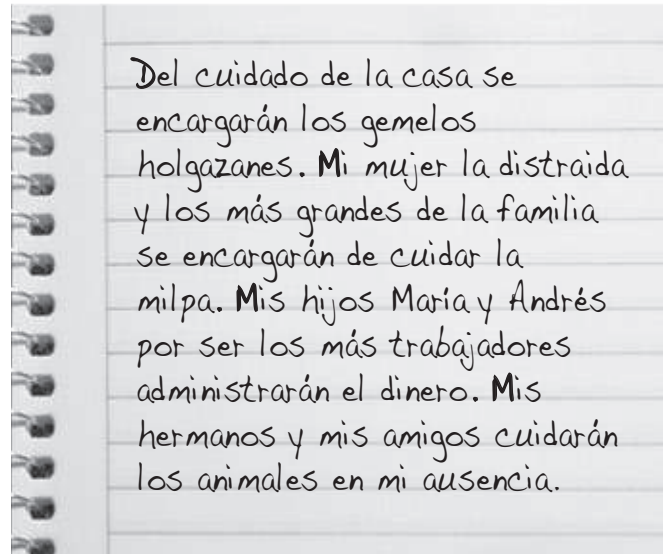 Del cuidado de la casa se
encargarán los gemelos
holgazanes. Mi mujer la distraida
y los más grandes de la familia
se encargarán de cuidar la
milpa. Mis hijos María y Andrés
por ser los más trabajadores
administrarán el dinero. Mis
hermanos y mis amigos cuidarán
los animales en mi ausencia.